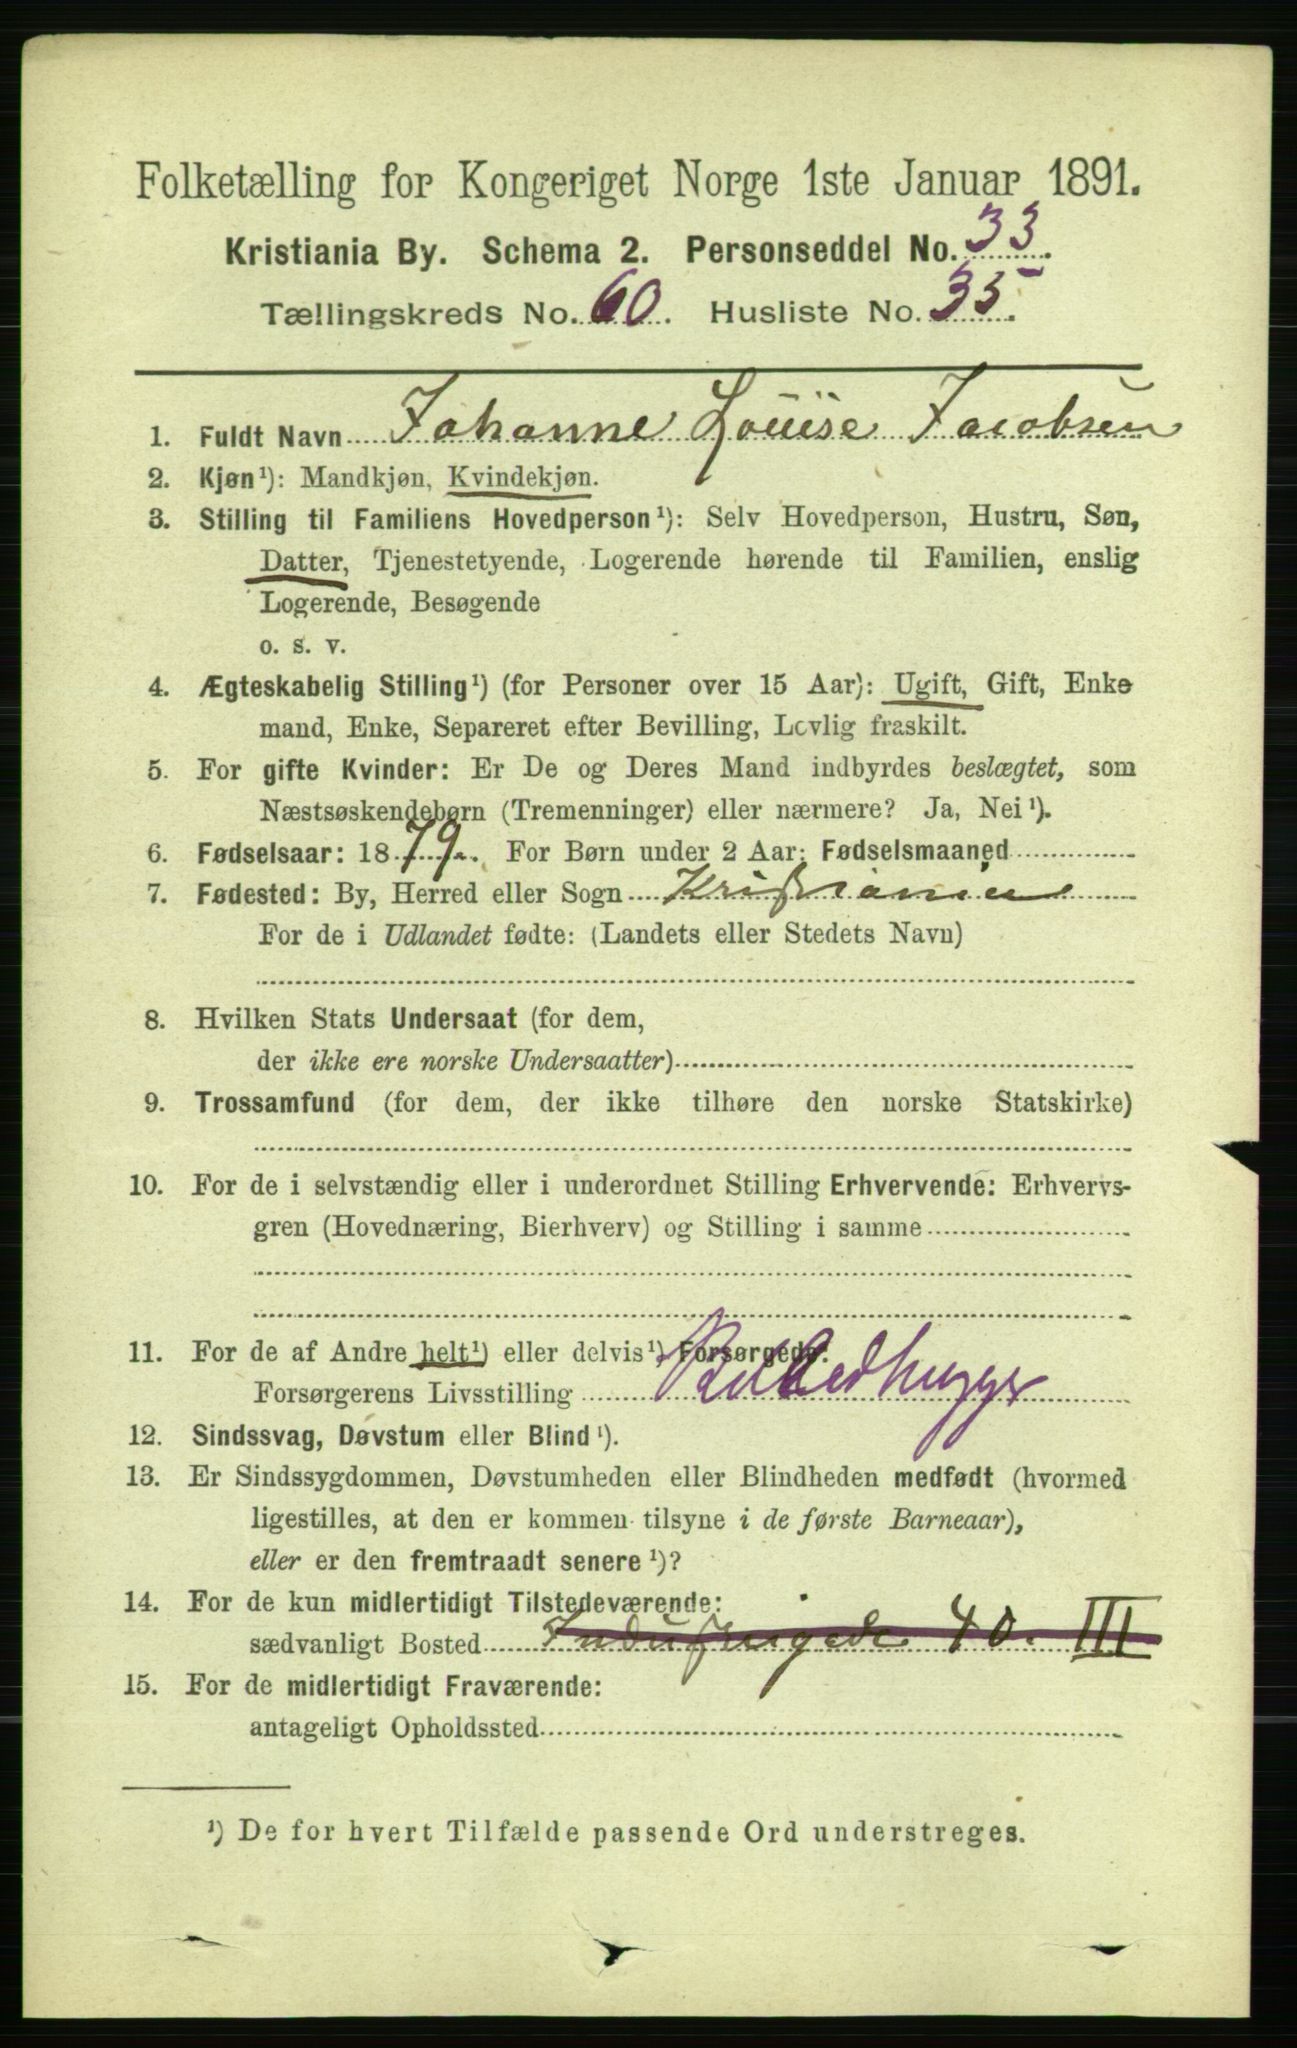 Folketælling for Kongeriget Norge 1ste Januar 1891.
Kristiania By. Schema 2. Personseddel No. 33.
Tællingskreds No. 60. Husliste No. 35.
1. Fuldt Navn Johanne Louise Jacobsen
2. Kjøn¹): Mandkjøn, Kvindekjøn.
3. Stilling til Familiens Hovedperson¹): Selv Hovedperson, Hustru, Søn,
Datter, Tjenestetyende, Logerende hørende til Familien, enslig
Logerende, Besøgende
o. s. v.
4. Ægteskabelig Stilling¹) (for Personer over 15 Aar): Ugift, Gift, Enke-
mand, Enke, Separeret efter Bevilling, Lovlig fraskilt.
5. For gifte Kvinder: Er De og Deres Mand indbyrdes beslægtet, som
Næstsøskendebørn (Tremenninger) eller nærmere? Ja, Nei¹).
6. Fødselsaar: 1879. For Børn under 2 Aar: Fødselsmaaned
7. Fødested: By, Herred eller Sogn Kristiania
For de i Udlandet fødte: (Landets eller Stedets Navn)
8. Hvilken Stats Undersaat (for dem,
der ikke ere norske Undersaatter)
9. Trossamfund (for dem, der ikke tilhøre den norske Statskirke)
10. For de i selvstændig eller i underordnet Stilling Erhvervende: Erhvervs-
gren (Hovednæring, Bierhverv) og Stilling i samme
11. For de af Andre helt¹) eller delvis¹) Forsørgede:
Forsørgerens Livsstilling
12. Sindssvag, Døvstum eller Blind¹).
13. Er Sindssygdommen, Døvstumheden eller Blindheden medfødt (hvormed
ligestilles, at den er kommen tilsyne i de første Barneaar),
eller er den fremtraadt senere¹)?
14. For de kun midlertidigt Tilstedeværende:
sædvanligt Bosted Industrigade 40. III
15. For de midlertidigt Fraværende:
antageligt Opholdssted
¹) De for hvert Tilfælde passende Ord understreges.